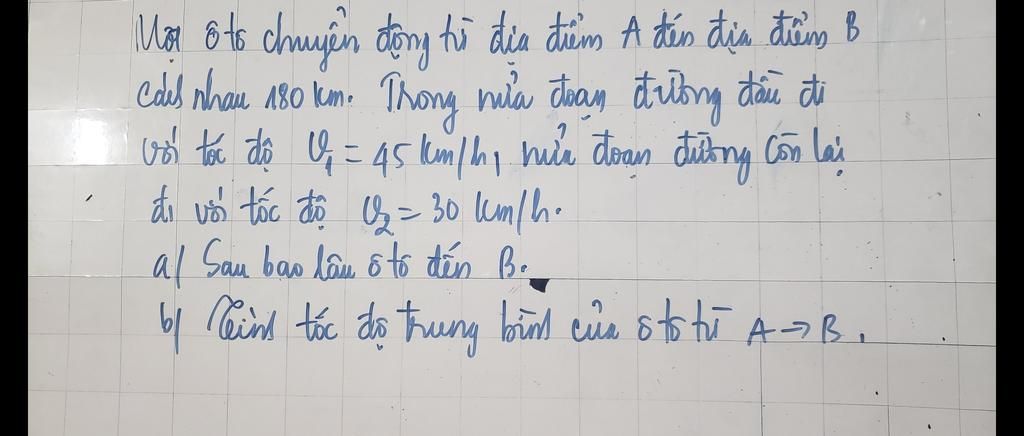 Một ôtô chuyển động từ địa điểm A đến địa điểm B
cách nhau 180 km. Trong nửa đoạn đường đầu đi
với tốc độ V₁ = 45 km/h, nửa đoạn đường còn lại
đi với tốc độ V₂ = 30 km/h.
a/ Sau bao lâu ôtô đến B.
b/ Tính tốc độ trung bình của ôtô từ A → B.